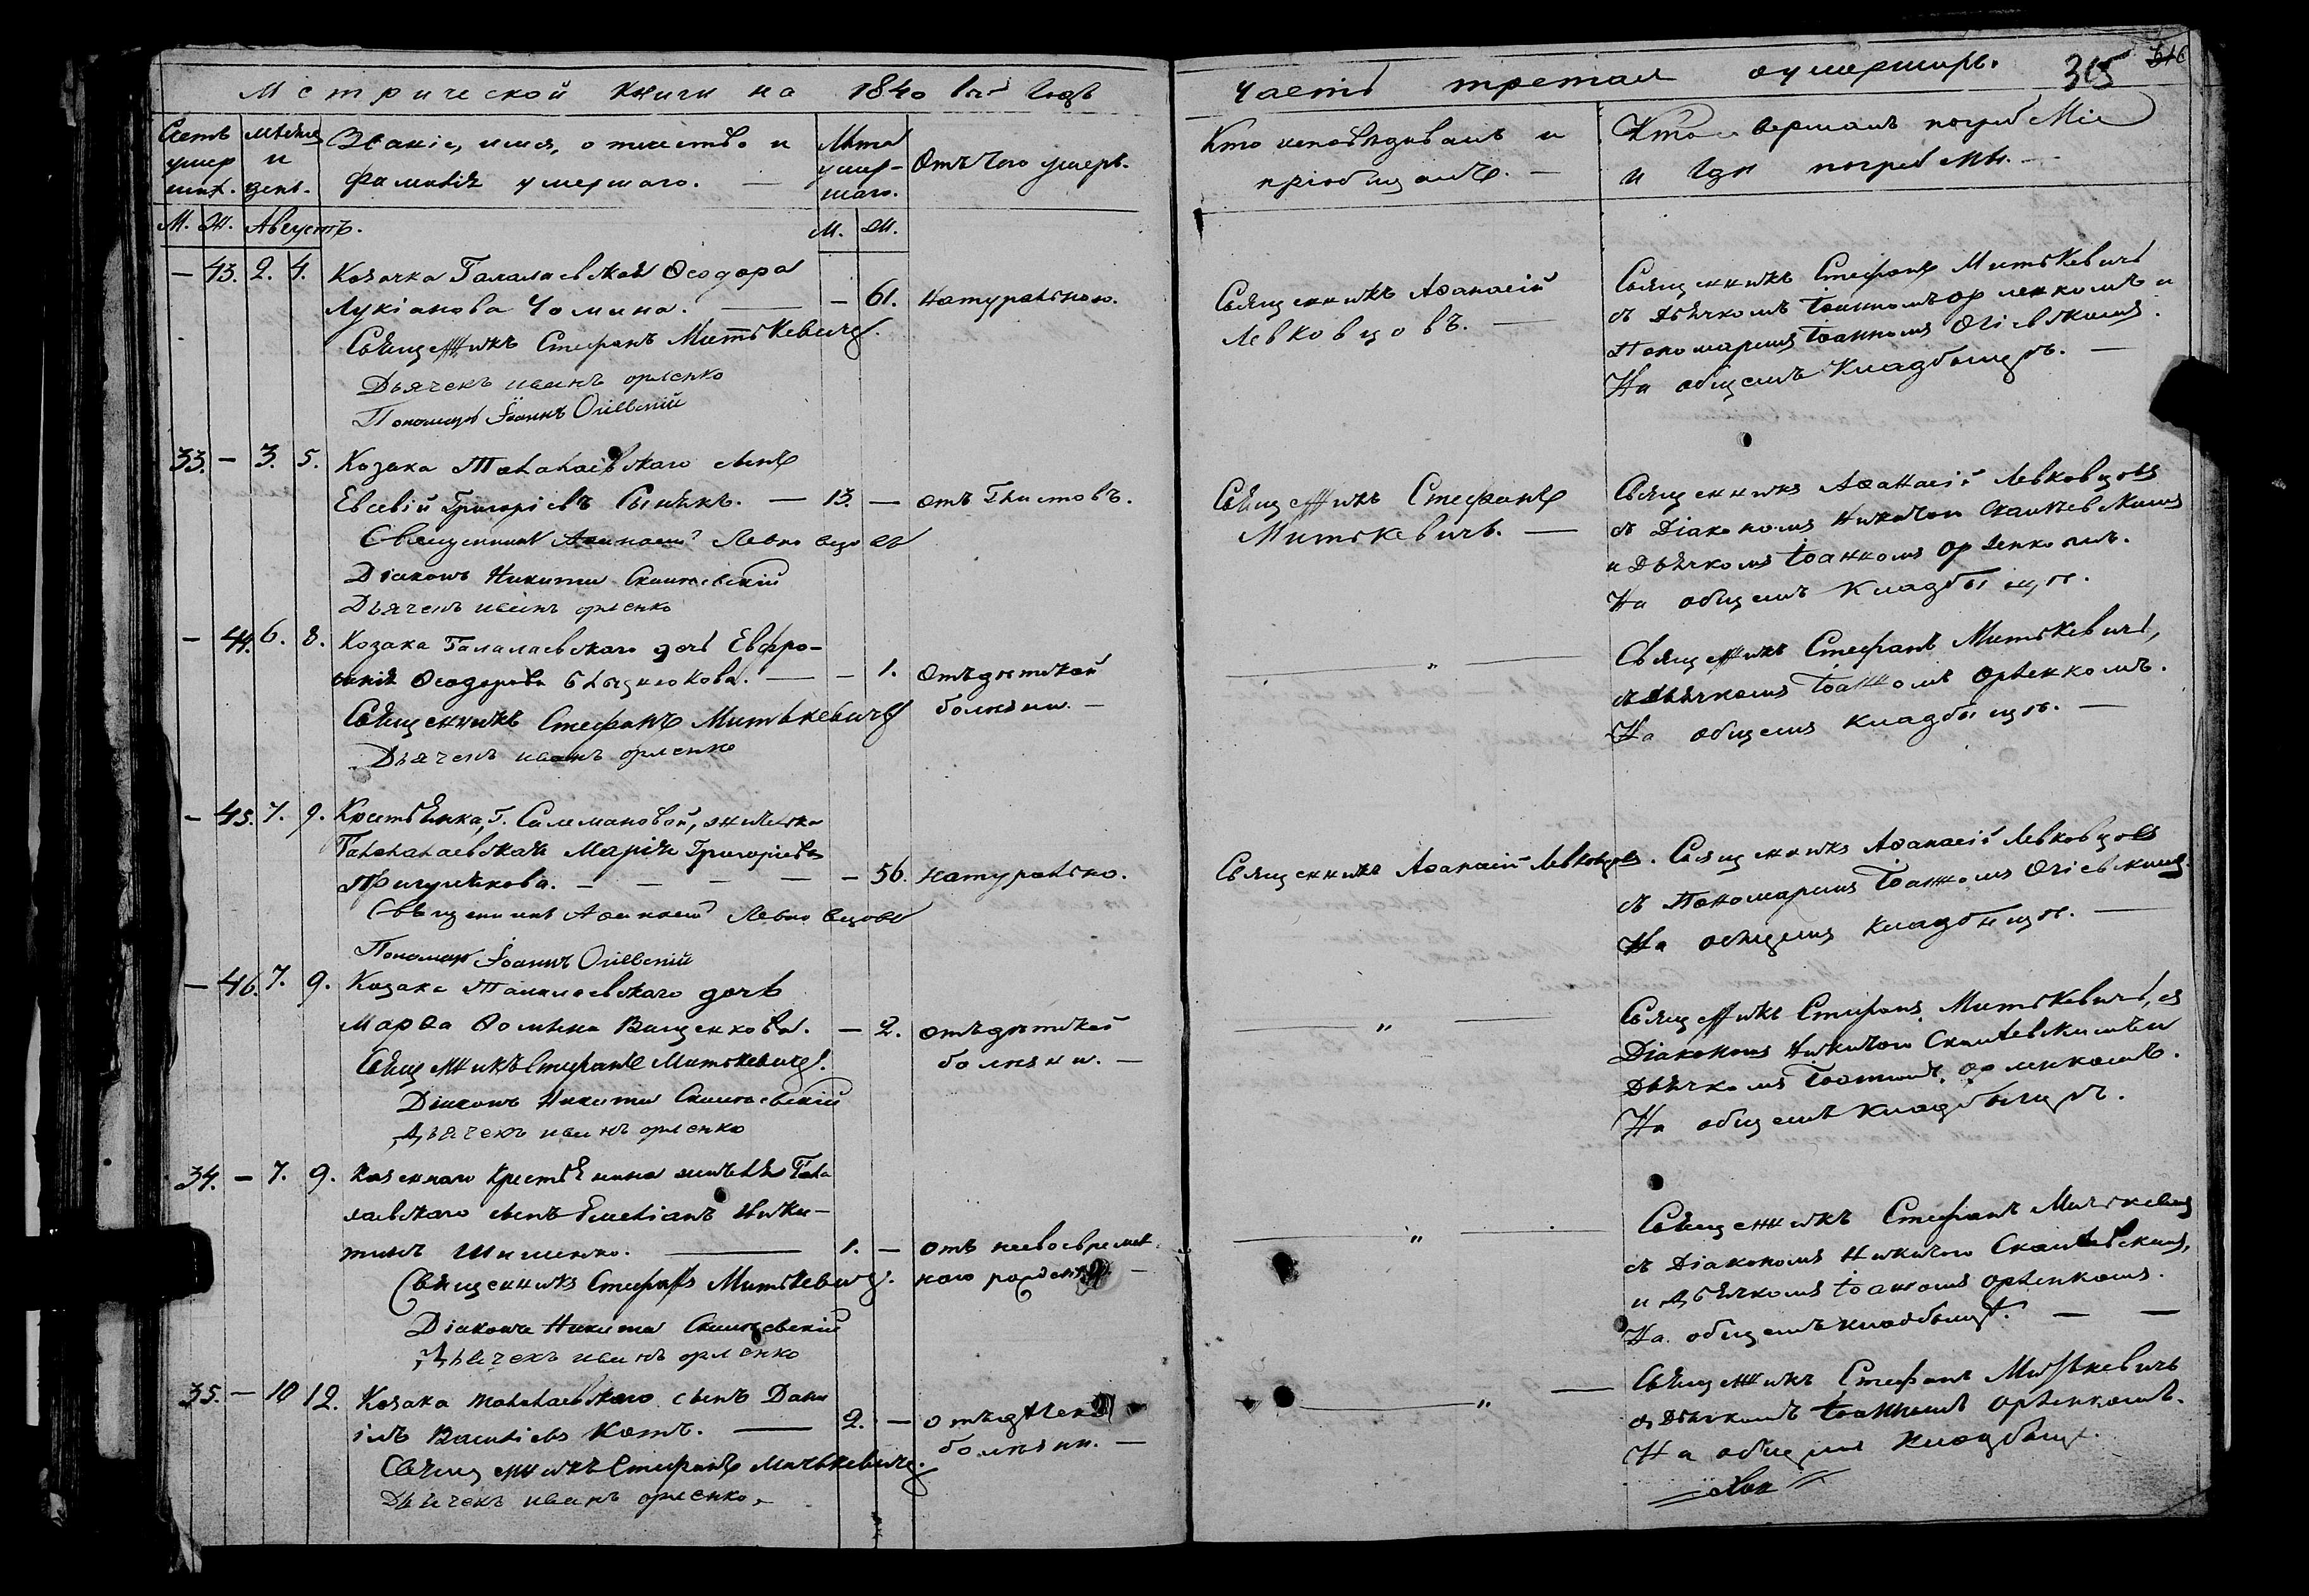 Метрической книги на 1840 й годъ
Счетъ умер шихъ.
мѣсяцъ и день.
Званіе, имя, отчество и фамилія умершаго.
Лѣта умер-шаго.
Отъ чего умеръ.
М. Ж. Августъ.
М. Ж.
— 43. 2. 4. Козачка Галалаевская Ѳеодора
Лукіанова Чомина. — — 61. натурально.
Священникъ Стефанъ Митькевичъ.
Дьячекъ иванъ орленко
Пономарь Іоаннъ Огіевскій
33. — 3. 5. Козака Талалаевскаго сынъ
Евсевій Григоріевъ — 13. — отъ Глистовъ.
Священникъ Афанасій Левковцовъ
Діаконъ Никита
Дьячекъ иванъ орленко
— 44. 6. 8. Козака Галалаевскаго дочь Евфро-
синія Ѳеодорова — — 1. отъ дѣтской
Священникъ Стефанъ Митькевичъ болѣзни. —
Дьячекъ иванъ орленко
— 45. 7. 9. Крестьянка, Г. жителька
Талалаевская Марія Григоріева
— — — — — 56. натурально.
Священникъ Афанасій Левковцовъ
Пономарь Іоаннъ Огіевскій
— 46. 7. 9. Козака Талалаевскаго дочь
Марѳа Ѳомина Ващенкова. — 2. отъ дѣтской
Священникъ Стефанъ Митькевичъ. болѣзни. —
Діаконъ Никита
Дьячекъ иванъ орленко
34. — 7. 9. Казеннаго крестьянина жителя Тала
лаевскаго сынъ Емеліанъ Ники-
тинъ Шименко. — 1. — отъ несвоевремен-
Священникъ Стефанъ Митькевичъ. наго рожденія. —
Діаконъ Никита
Дьячекъ иванъ орленко
35. — 10 12. Козака талалаевскаго сынъ Дани
илъ Василіевъ Котъ. — 2. — отъ дѣтской
Священникъ Стефанъ Митькевичъ. болѣзни. —
Дьячекъ иванъ орленко.
часть третая оумершихъ. 315
Кто исповѣдывалъ и пріобщалъ. —
Кто совершалъ погребеніе и гдѣ погребены. —
Священникъ Афанасій
Левковцовъ. —
Священникъ Стефанъ Митькевичъ
съ Дьячкомъ Іоанномъ орленкомъ и
Пономаремъ Іоанномъ Огіевскимъ.
На общемъ Кладбищѣ. —
Священникъ Стефанъ
Митькевичъ. —
Священникъ Афанасій Левковцовъ
съ Діакономъ Никитою
и Дьячкомъ Іоанномъ Орленкомъ.
На общемъ Кладбищѣ.
— „ —
Священникъ Стефанъ Митькевичъ,
съ Дьячкомъ Іоанномъ Орленкомъ.
На общемъ кладбищѣ. —
Священникъ Афанасій Левковцовъ.
Священникъ Афанасій Левковцовъ
съ Пономаремъ Іоанномъ Огіевскимъ.
На общемъ кладбищѣ. —
— „ —
Священникъ Стефанъ Митькевичъ, съ
Діакономъ Никитою и
Дьячкомъ Іоанномъ орленкомъ.
На общемъ кладбищѣ.
— „ —
Священникъ Стефанъ Митькевичъ
съ Діакономъ Никитою
и Дьячкомъ Іоанномъ орленкомъ.
На общемъ кладбищѣ. — —
— „ —
Священникъ Стефанъ Митькевичъ
съ Дьячкомъ Іоанномъ Орленкомъ.
На общемъ Кладбищѣ.